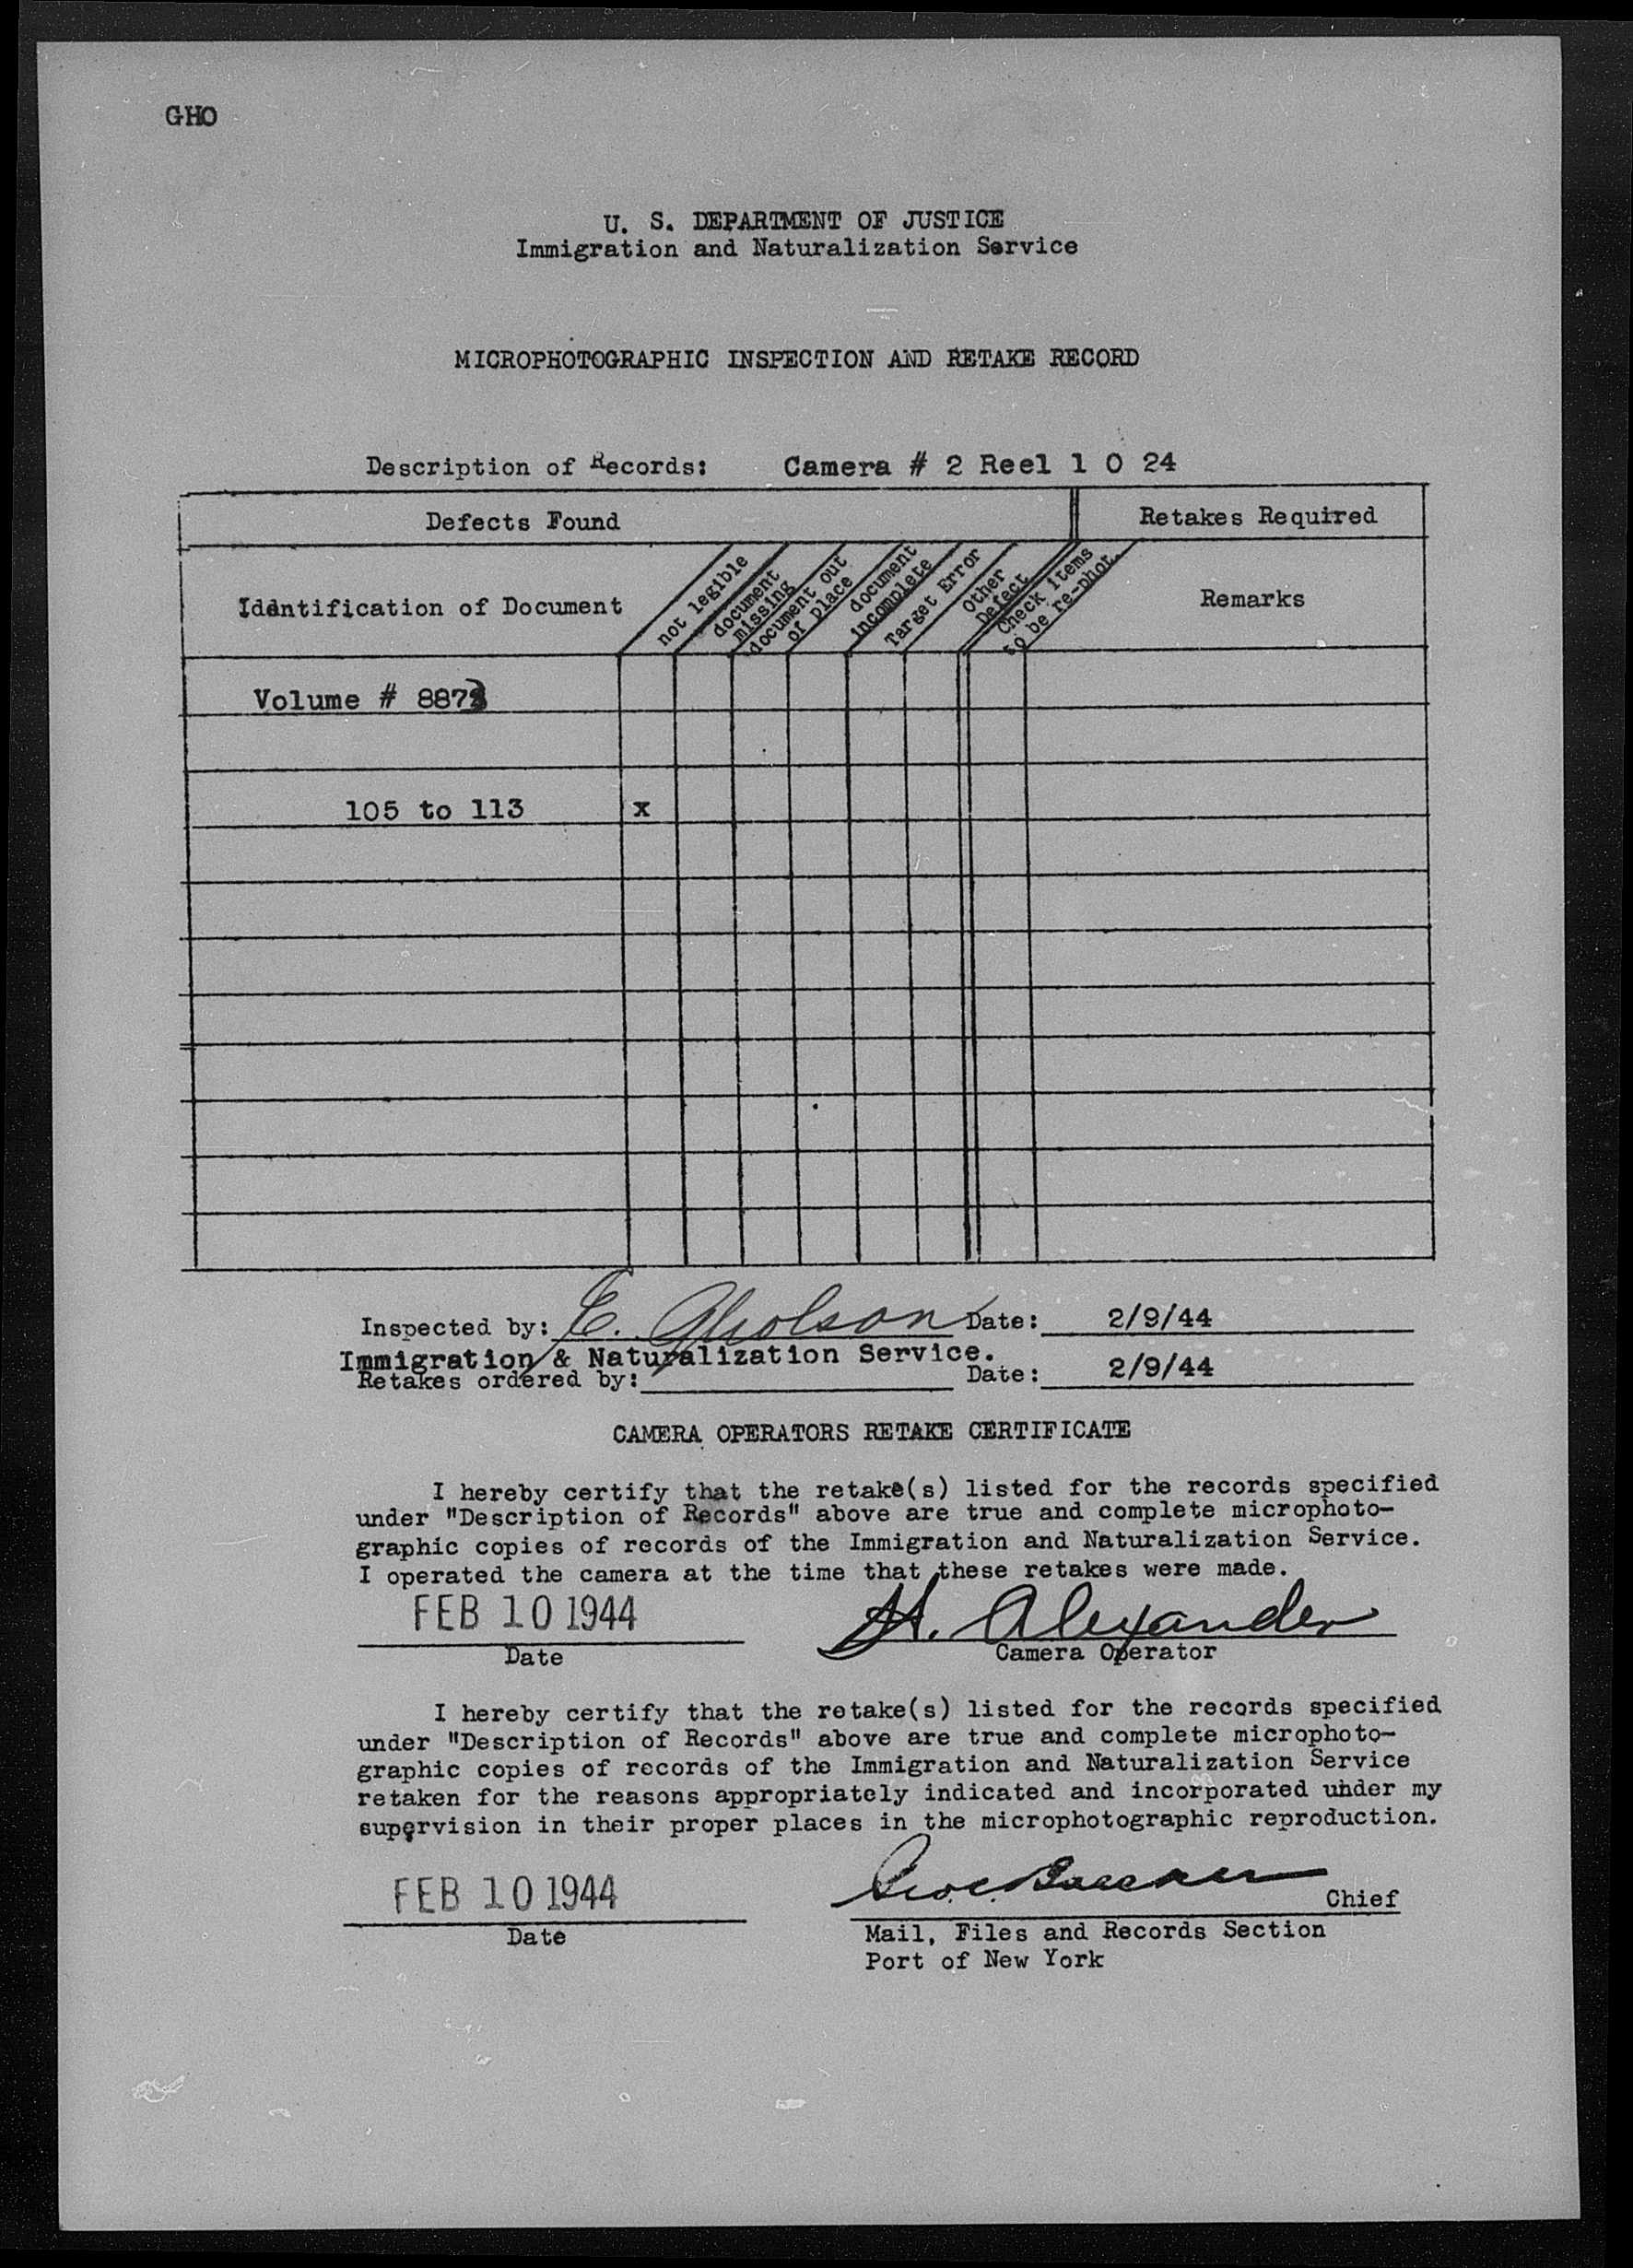 GHO
U. S. DEPARTMENT OF JUSTICE
Immigration and Naturalization Service
MICROPHOTOGRAPHIC INSPECTION AND RETAKE RECORD
Description of Records: Camera # 2 Reel 1 0 24
Defects Found Retakes Required
Identification of Document
not legible
document
missing
document out
of place
document
incomplete
Target Error
Other
Defect
Check items
to be re-phot.
Remarks
Volume #
105 to 113 x
Inspected by: E. Gholson Date: 2/9/44
Immigration & Naturalization Service.
Retakes ordered by: Date: 2/9/44
CAMERA OPERATORS RETAKE CERTIFICATE
I hereby certify that the retake(s) listed for the records specified
under "Description of Records" above are true and complete microphoto-
graphic copies of records of the Immigration and Naturalization Service.
I operated the camera at the time that these retakes were made.
FEB 10 1944 H. Alexander
Date Camera Operator
I hereby certify that the retake(s) listed for the records specified
under "Description of Records" above are true and complete microphoto-
graphic copies of records of the Immigration and Naturalization Service
retaken for the reasons appropriately indicated and incorporated under my
supervision in their proper places in the microphotographic reproduction.
FEB 10 1944 Chief
Date Mail, Files and Records Section
Port of New York